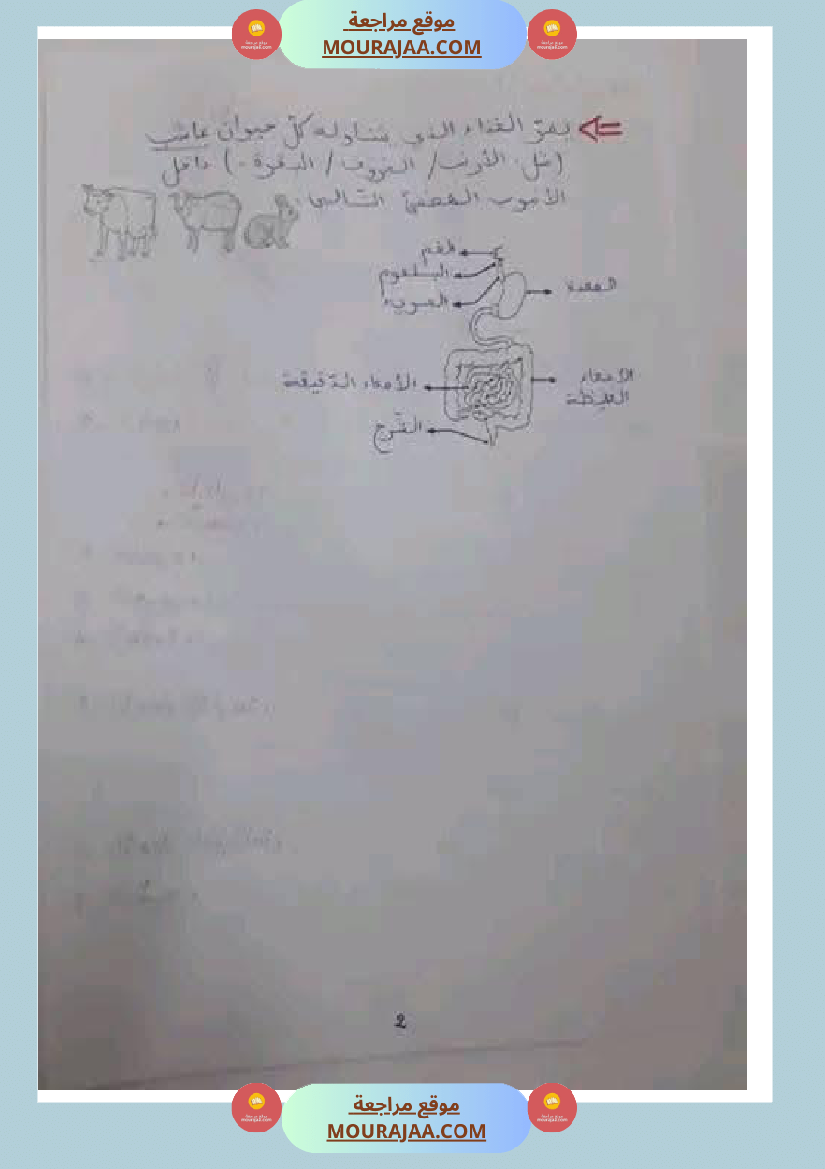 موقع مراجعة
MOURAJAA.COM
يمرّ الغذاء الذي يتناوله كلّ حيوان عاشب
(مثل: الأرنب/ الخروف/ البقرة..) داخل
الأنبوب الهضميّ التّالي:
الفم
البلعوم
المريء
المعدة
الأمعاء الدّقيقة
الأمعاء
الغليظة
الشّرج
2
موقع مراجعة
MOURAJAA.COM